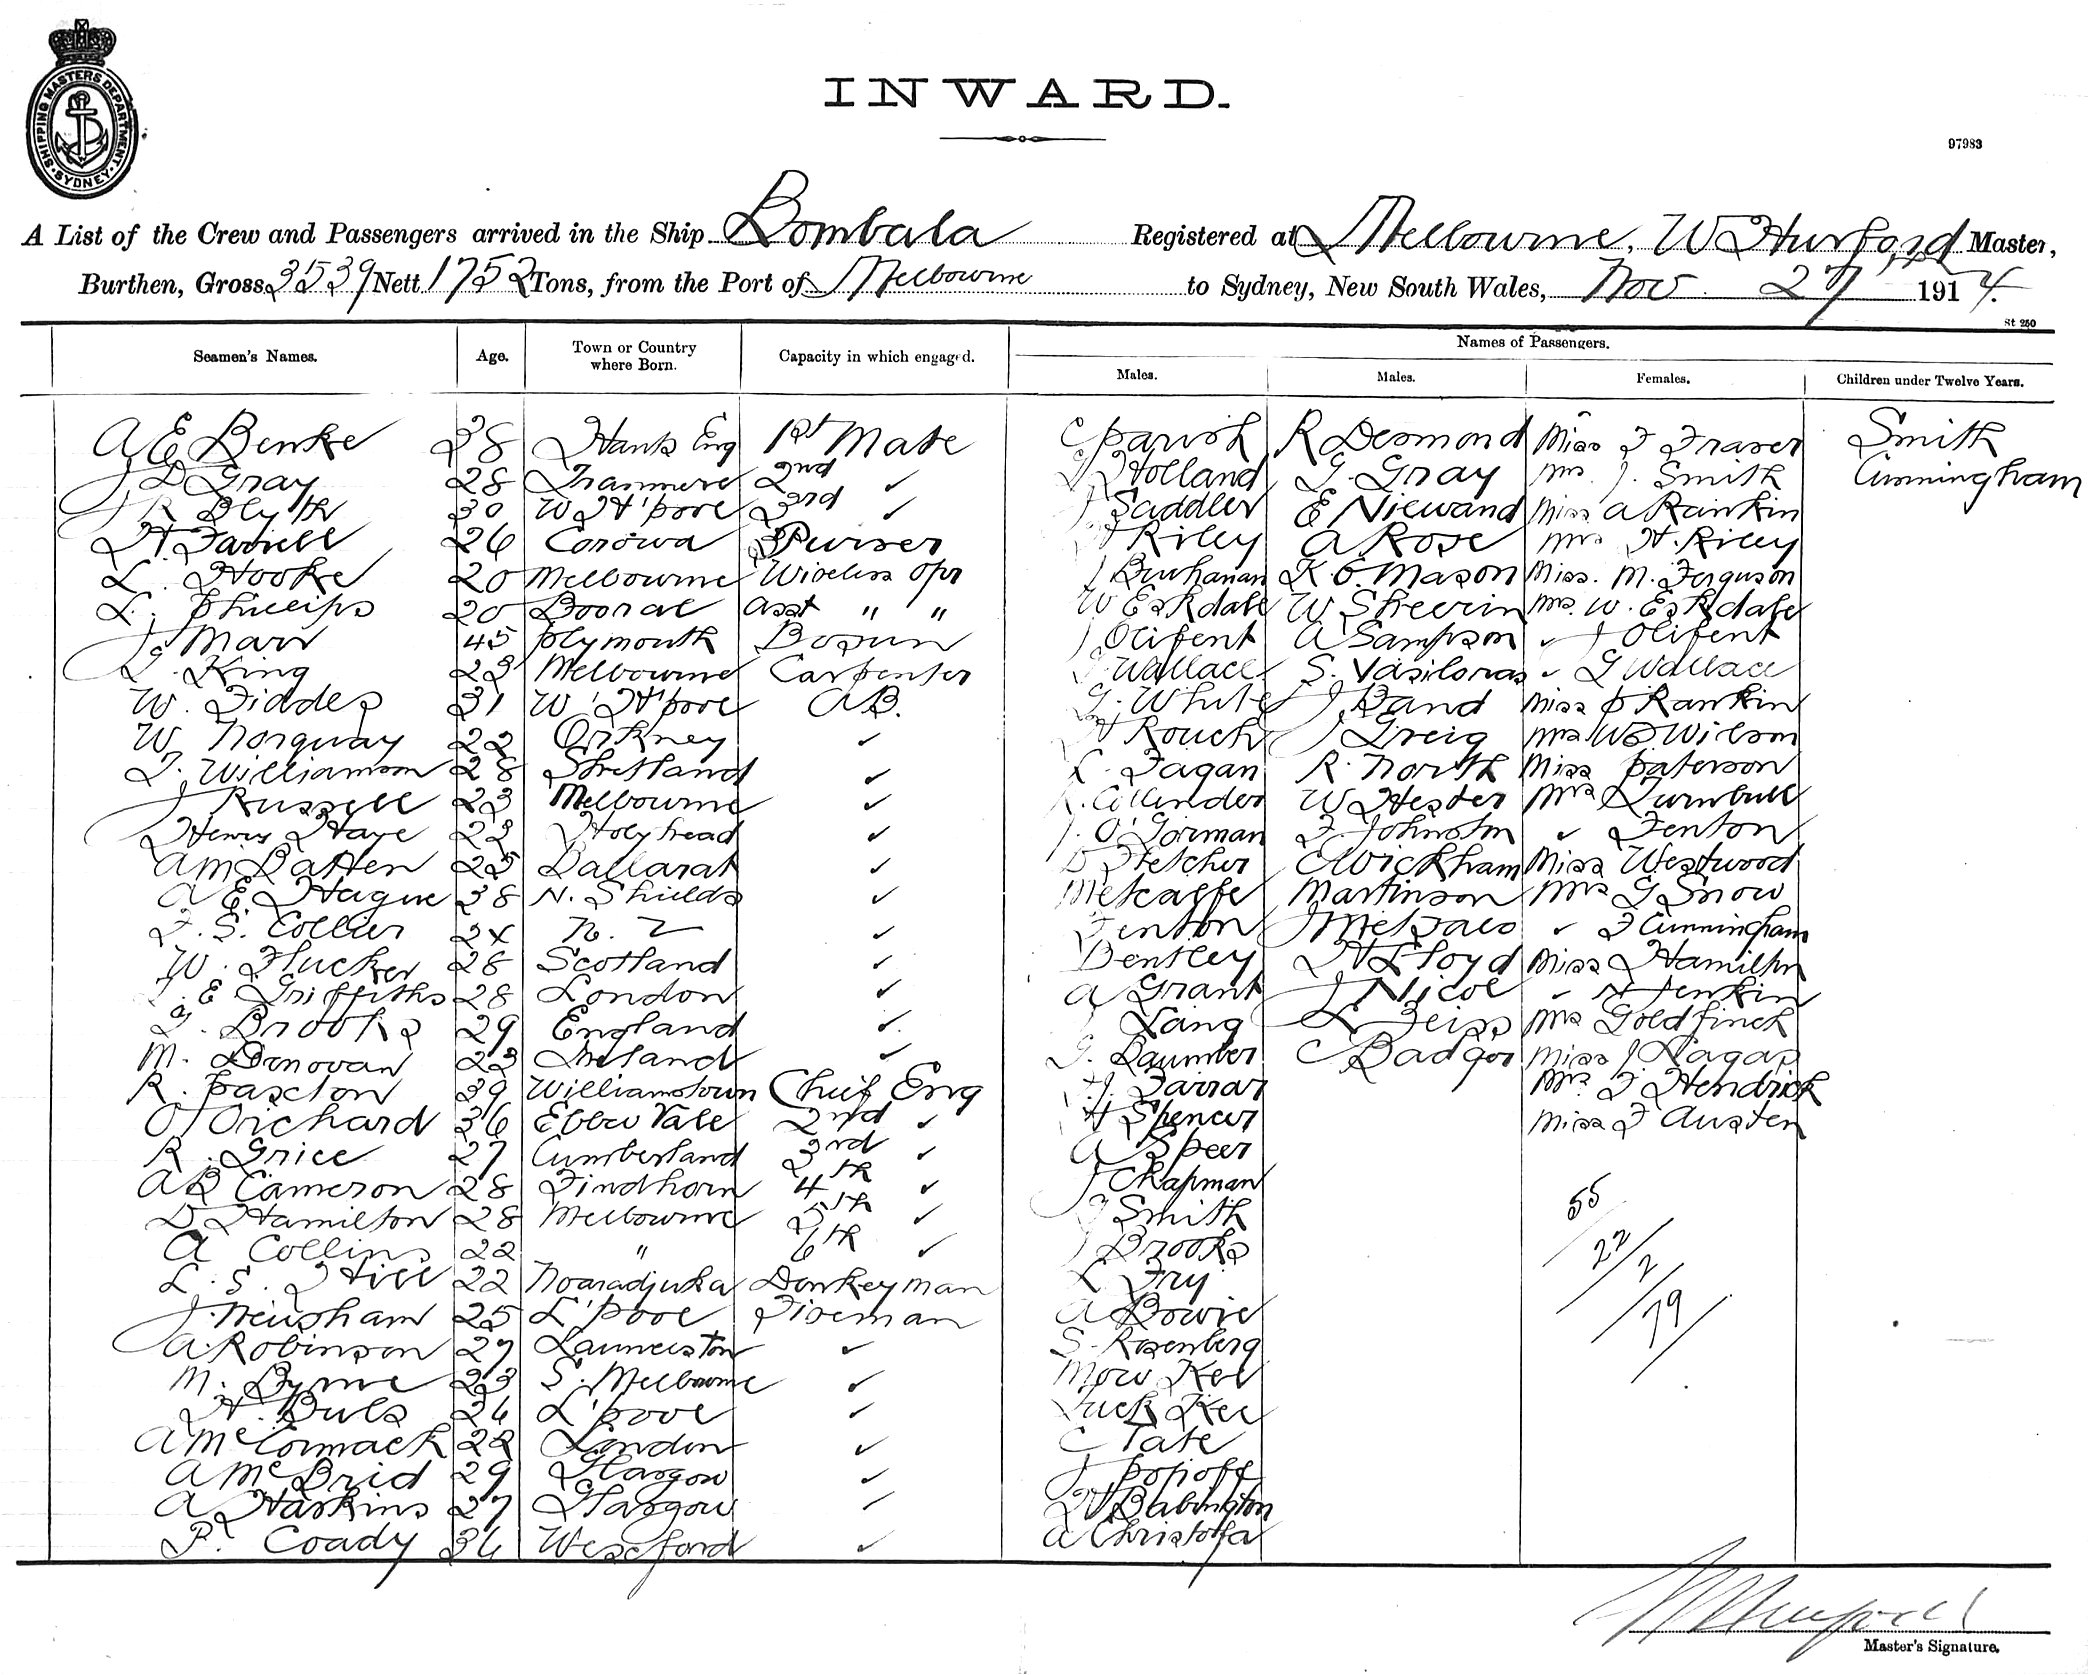 SHIPPING MASTERS DEPARTMENT SYDNEY
INWARD.
97983
A List of the Crew and Passengers arrived in the Ship Bombala Registered at Melbourne, W Hurford Master,
Burthen, Gross 3539 Nett 1752 Tons, from the Port of Melbourne to Sydney, New South Wales, Nov 27 1914.
St 250
Seamen's Names. Age. Town or Country where Born. Capacity in which engaged. Names of Passengers.
Males. Males. Females. Children under Twelve Years.
A E Benke 38 Hants Eng 1st Mate C Parish R Desmond Miss F Fraser Smith
J D Gray 28 Tranmere 2nd ✓ Holland G. Gray Mrs. J. Smith Cunningham
J R Blyth 30 W H'pool 3rd ✓ J Saddler E Niewand Miss A Rankin
H Farrell 26 Corowa Purser Riley A Rose Mrs H. Riley
L. Hooke 20 Melbourne Wireless Opr J Buchanan K. O. Mason Miss. M. Ferguson
L. Phillips 20 Booral Asst " " W Eskdale W Sheerin Mrs. W. Eskdale
J. Marr 45 Plymouth Bosun J Olifent A Sampson ✓ J Olifent
L. King 23 Melbourne Carpenter Wallace S. Vasiloras ✓ G Wallace
W. Fiddes 31 W H'pool AB. G. White J Band Miss P Rankin
W Norquay 22 Orkney ✓ H Rouch J Greig Mrs W D Wilson
T. Williamson 28 Shetland ✓ L. Fagan R. North Miss Paterson
J Russell 23 Melbourne ✓ Callinder W Hester Mrs Turnbull
Henry Haye 22 Holyhead ✓ J. O'Gorman F Johnston ✓ Fenton
A M Batten 25 Ballarat ✓ D Fletcher C Wickham Miss Westwood
A E Hague 38 N. Shields ✓ Metcalfe Martinson Mrs G Snow
F. S. Collier 24 N. Z ✓ Fenton ✓ F Cunningham
W. Flucker 28 Scotland ✓ Bentley H Lloyd Miss Hamilton
E Griffiths 28 London ✓ A Grant J Nicol ✓ H Jenkin
G. Brooks 29 England ✓ Lang L Zeiss Mrs Goldfinch
M. Donovan 23 Ireland ✓ G. Daumber C Badger Miss J Nagas
R. Paxton 39 Williamstown Chief Eng J. Farrar Mrs. F Hendrick
O Orchard 36 Ebbw Vale 2nd ✓ H Spencer Miss F Austen
R. Grice 27 Cumberland 3rd ✓ A Speer
A B Cameron 28 Findhorn 4th ✓ J Chapman
D Hamilton 28 Melbourne 5th ✓ Smith
A Collins 22 " 6th ✓ J Brooks
L. S. Hill 22 Noaradjuka Donkeyman L Fry
J. Neusham 25 L'pool Fireman A Bowie
A. Robinson 27 Launceston ✓ S. Rosenberg
M. Byrne 23 S. Melbourne ✓ Mow Kee
H. Buls 26 L'pool ✓ Luck Kee
A McCormack 22 London ✓ C Tate
A McBrid 29 Glasgow ✓ J Popoff
A Haskins 27 Glasgow ✓ Babington
P. Coady 36 Wexford ✓ A Christofa
55
22/2
79
Master's Signature.